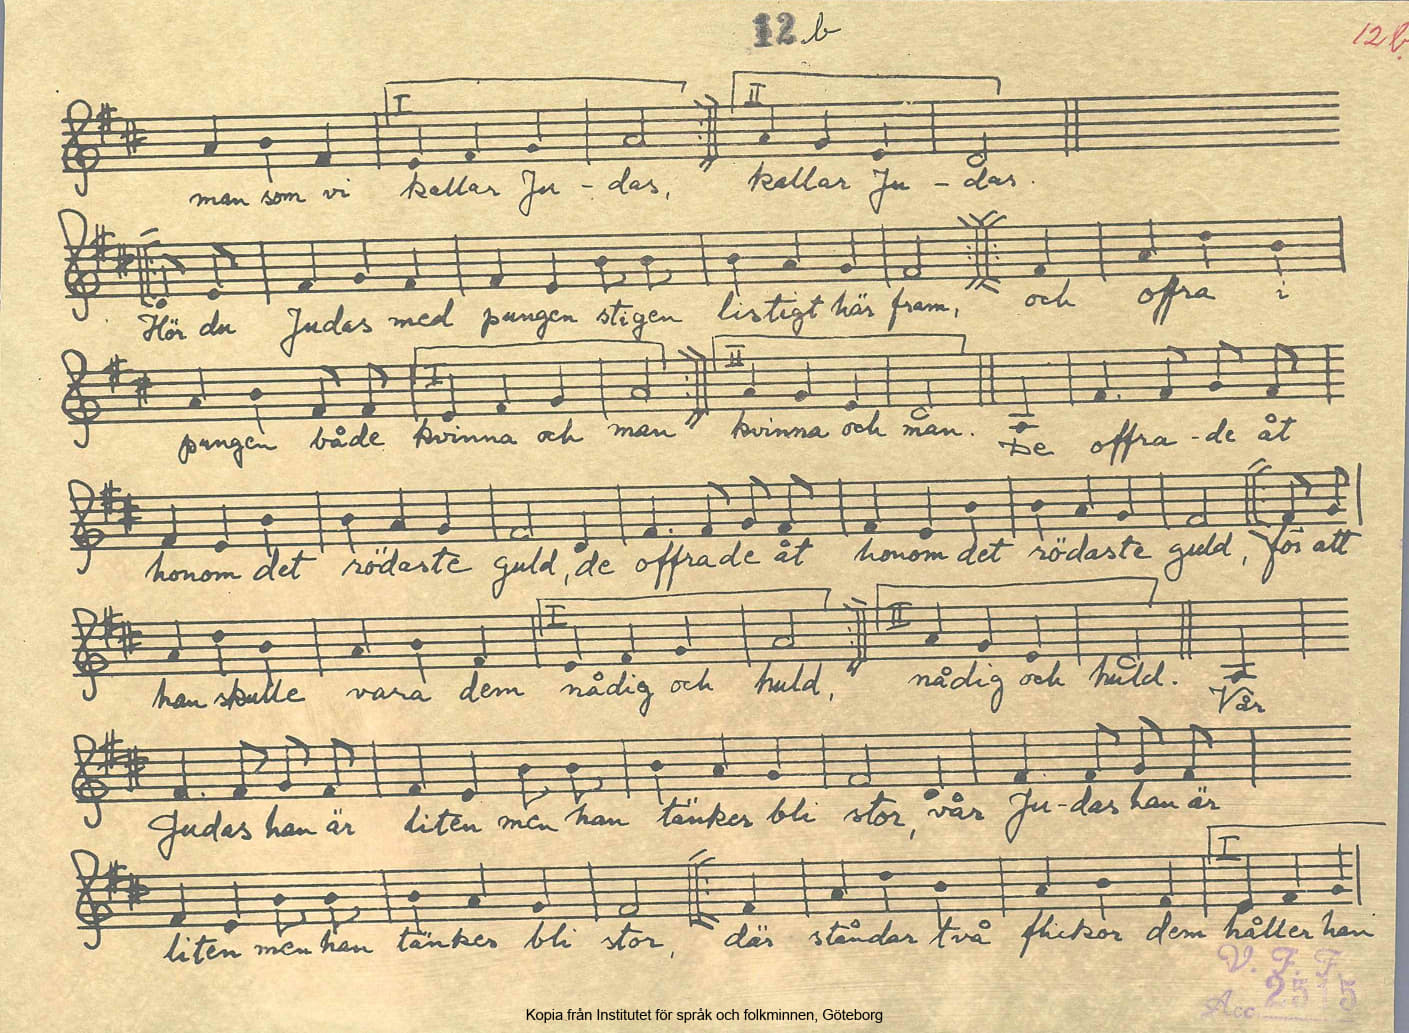 12 b
12 b.
I II
man som vi kallar Ju - das, kallar Ju - das.
Hör du Judas med pungen stigen listigt här fram, och offra i
I II
pungen både kvinna och man kvinna och man. De offra - de åt
honom det rödaste guld, de offrade åt honom det rödaste guld, för att
I II
han skulle vara dem nådig och huld, nådig och huld. Vår
Judas han är liten men han tänker bli stor, vår Ju - das han är
I
liten men han tänker bli stor, där ståndar två flickor dem håller han
V. F. F.
Acc
Kopia från Institutet för språk och folkminnen, Göteborg